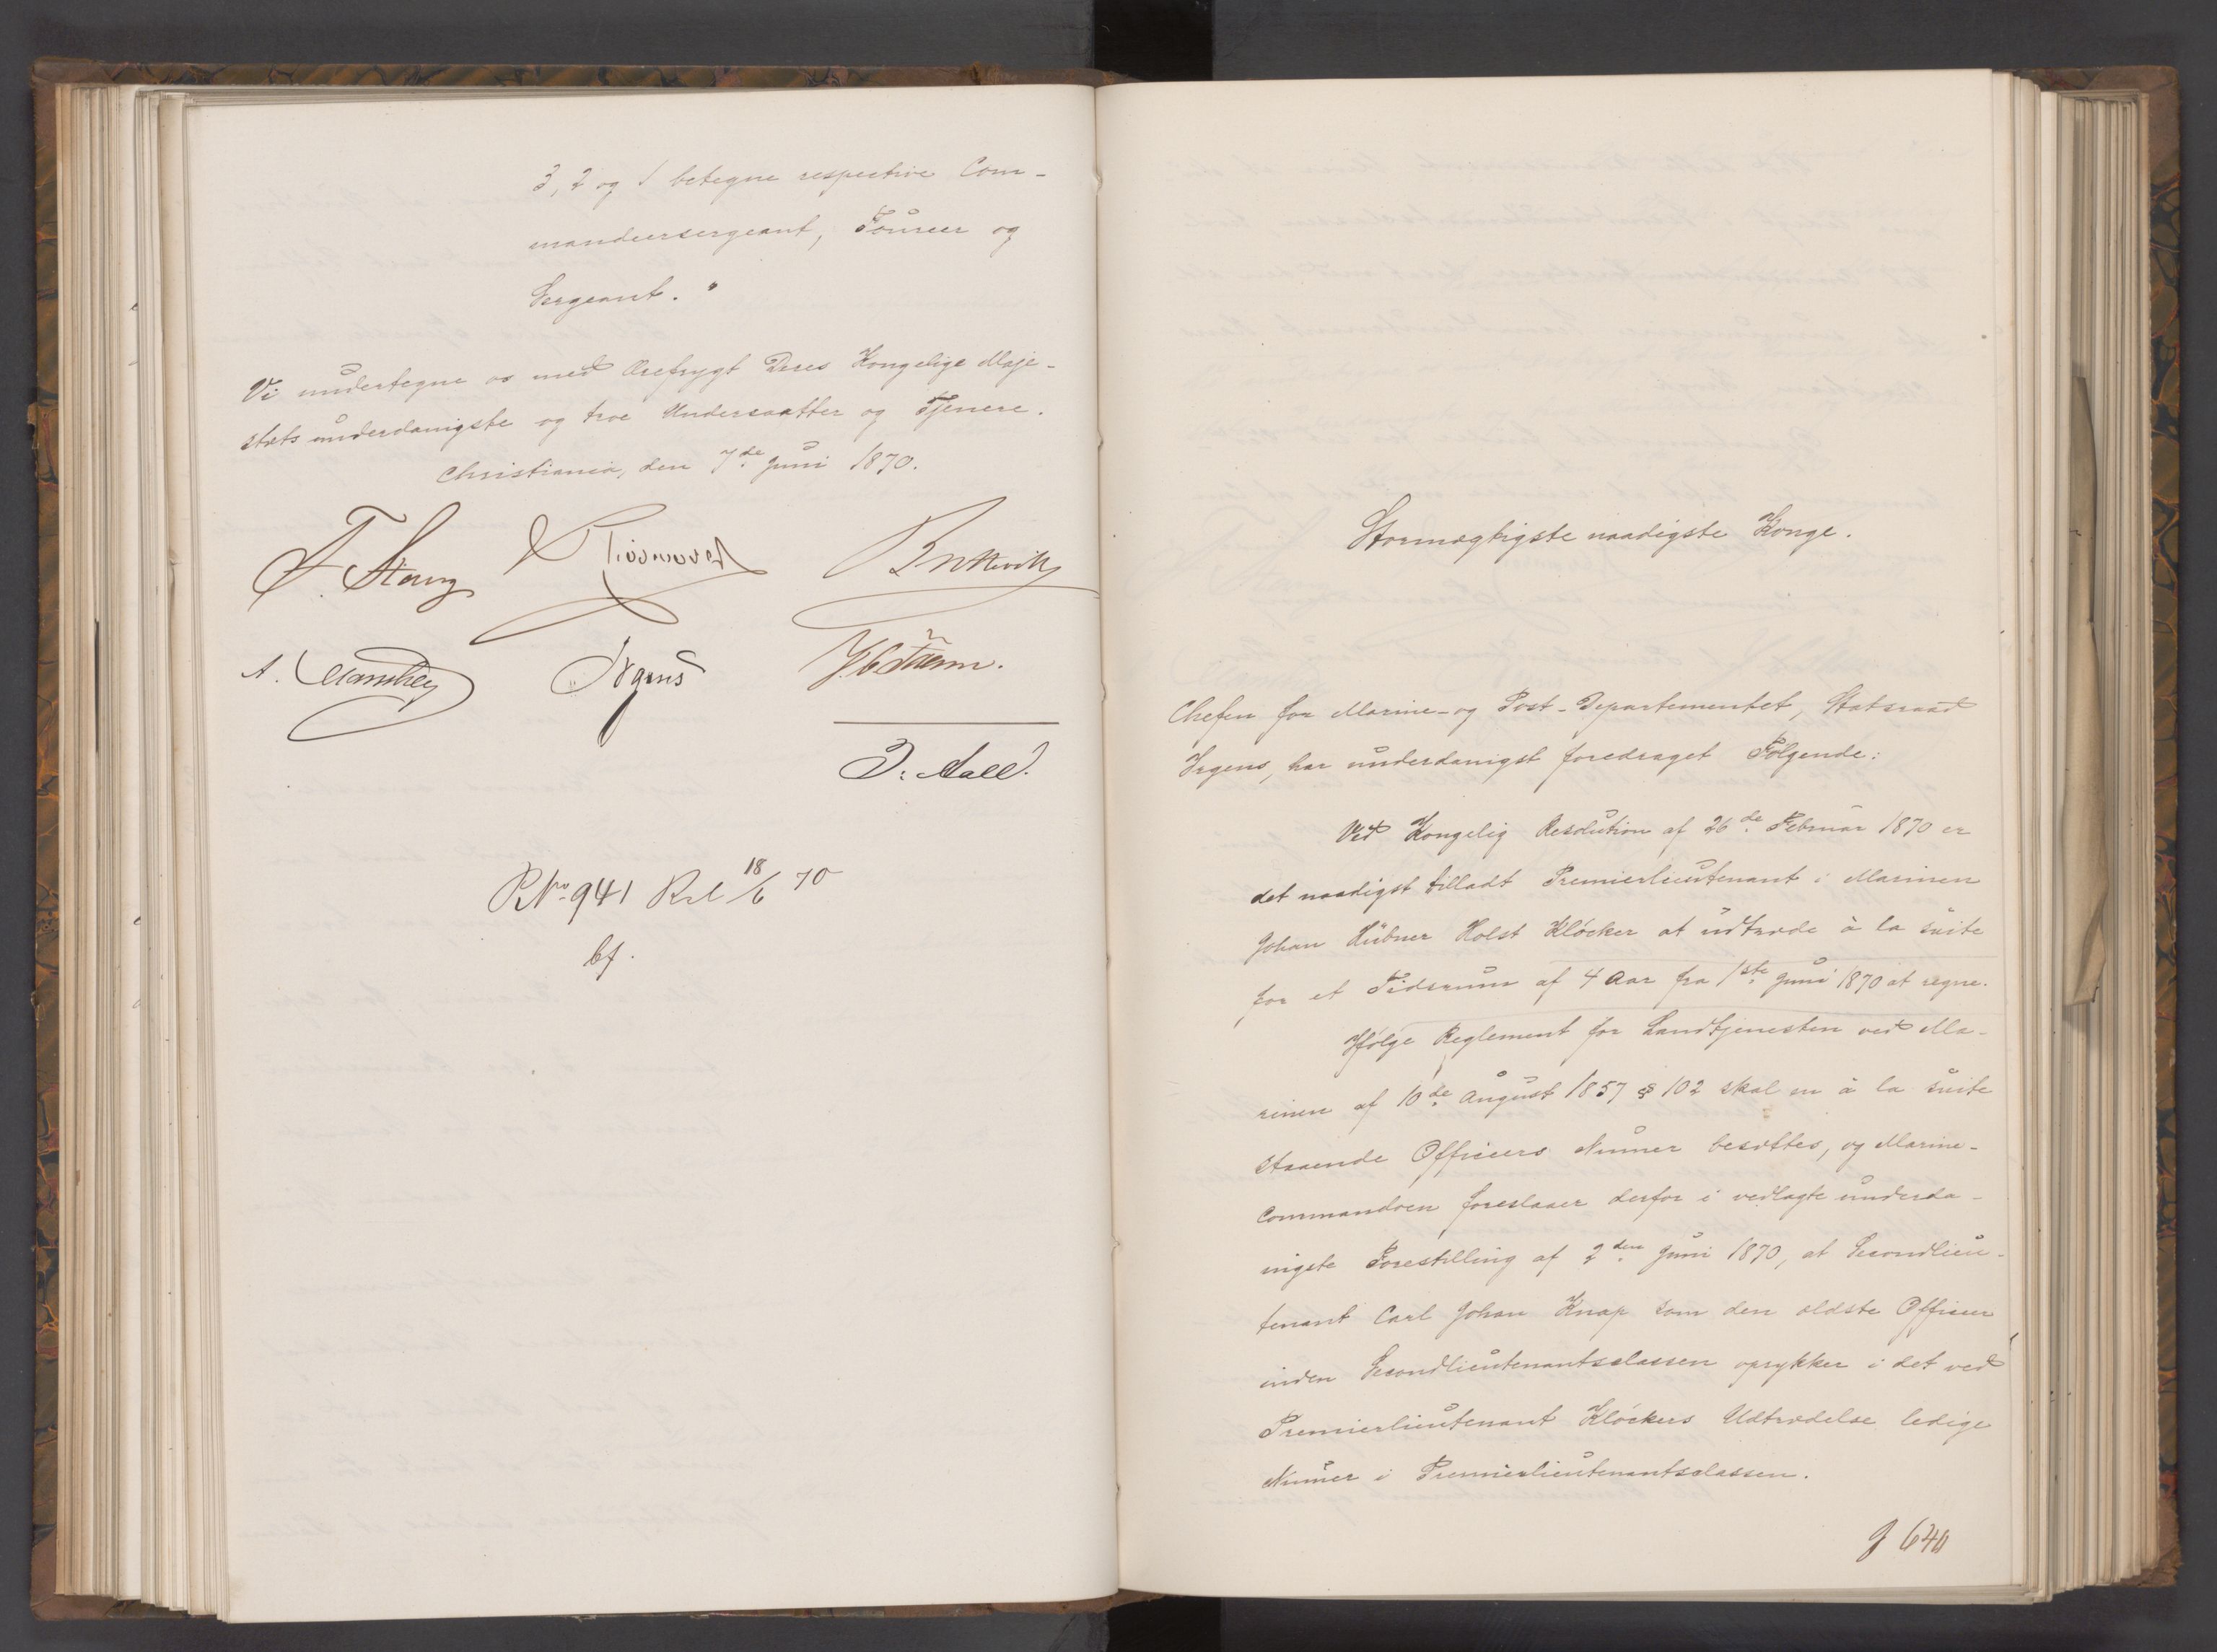 3, 2 og 1 betegne respective Com-
mandeersergeant, Foureer og
Sergeant."
Vi undertegne os med Ærefrygt Deres Kongelige Maje-
stæts underdanigste og troe Undersaatter og Tjenere.
Christiania, den 7de Juni 1870.
F. Stang
A. Manthey Irgens
J. Aall.
RNo 941 Rsl 18/6 70
bf.
Stormægtigste naadigste Konge.
Chefen for Marine- og Post-Departementet, Statsraad
Irgens, har underdanigst foredraget Følgende:
Ved Kongelig Resolution af 26de Februar 1870 er
det naadigst tilladt Premierlieutenant i Marinen
Johan Hübner Holst Kløcker at udtræde à la suite
for et Tidsrum af 4 Aar fra 1ste Juni 1870 at regne.
Ifølge Reglement for Landtjenesten ved Ma-
rinen af 10de August 1857 § 102 skal en à la suite
staaende Officiers Numer besættes, og Marine-
commandoen foreslaaer derfor i vedlagte underda-
nigste Forestilling af 2den Juni 1870, at Secondlieu-
tenant Carl Johan Knap som den ældste Officier
inden Secondlieutenantsclassen oprykker i det ved
Premierlieutenant Kløckers Udtrædelse ledige
Numer i Premierlieutenantsclassen.